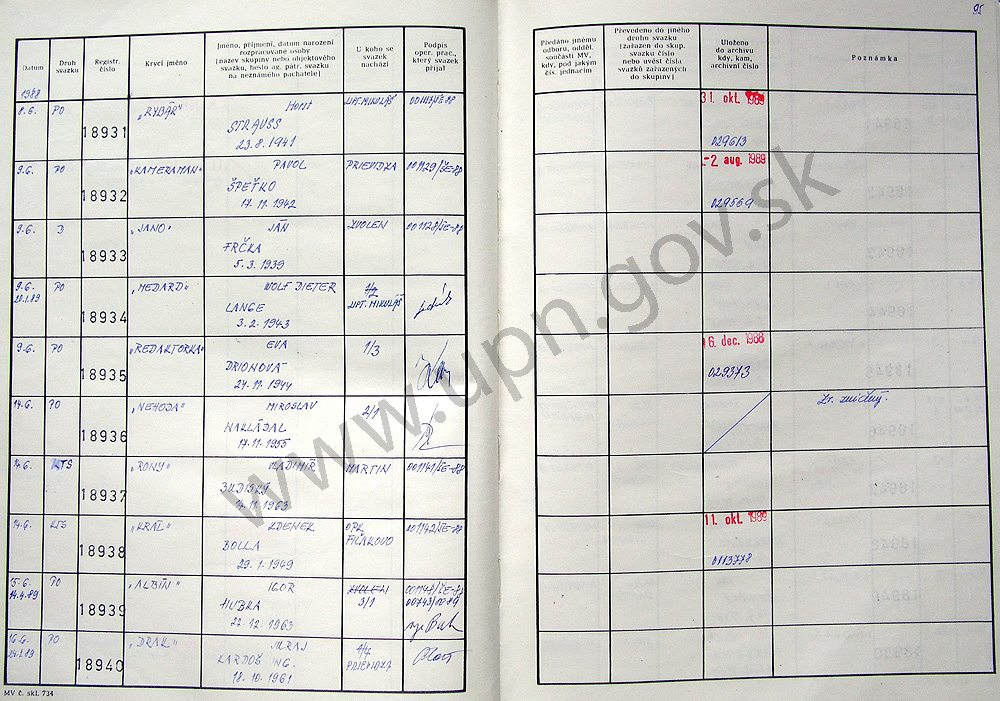 95
Datum
Druh svazku
Registr. číslo
Krycí jméno
Jméno, příjmení, datum narození
rozpracované osoby
(název skupiny nebo objektového
svazku, heslo ag. pátr. svazku
na neznámého pachatele)
U koho se
svazek
nachází
Podpis
oper. prac.,
který svazek
přijal
Předáno jinému
odboru, odděl.
součásti MV,
kdy, pod jakým
čís. jednacím
Převedeno do jiného
druhu svazku
(zařazen do skup.
svazku číslo
nebo uvést čísla
svazků zařazených
do skupiny)
Uloženo
do archivu
kdy, kam,
archivní číslo
Poznámka
1988
8.6. PO 18931 "RYBÁŘ" Horst LIPT. MIKULÁŠ
STRAUSS
23.8.1941
31. okt. 1989
029613
9.6. PO 18932 "KAMERAMAN" PAVOL PRIEVIDZA 001129/SE-88
ŠPEŤKO
17.11.1942
-2 aug. 1989
029569
9.6. 18933 "JANO" JÁN ZVOLEN 001128/SE-88
FRČKA
5.3.1939
9.6. PO 18934 "MEDARD" WOLF DIETER
LANGE LIPT. MIKULÁŠ
3.2.1943
9.6. PO 18935 "REDAKTORKA" EVA 1/3
DRIONOVÁ
24.11.1944
16. dec. 1988
029373
14.6. PO 18936 "NEHODA" MIROSLAV 2/1
NAKLÁDAL
17.11.1955
Zv. zničený.
14.6. KTS 18937 "RONY" VLADIMÍR MARTIN 001141/SE-88
BUDISKÝ
14.11.1963
14.6. KTS 18938 "KRÁĽ" ZDENEK OPK 001142/SE-88
BOLLA FIĽAKOVO
29.1.1949
11. okt. 1989
0113778
15.6. PO 18939 "ALBÍN" IGOR ZVOLEN
14.4.89 HUBKA 3/1
22.12.1963
16.6. PO 18940 "DRAK" JURAJ
KARDOŠ ING. PRIEVIDZA
18.10.1961
MV č. skl. 734
www.upn.gov.sk